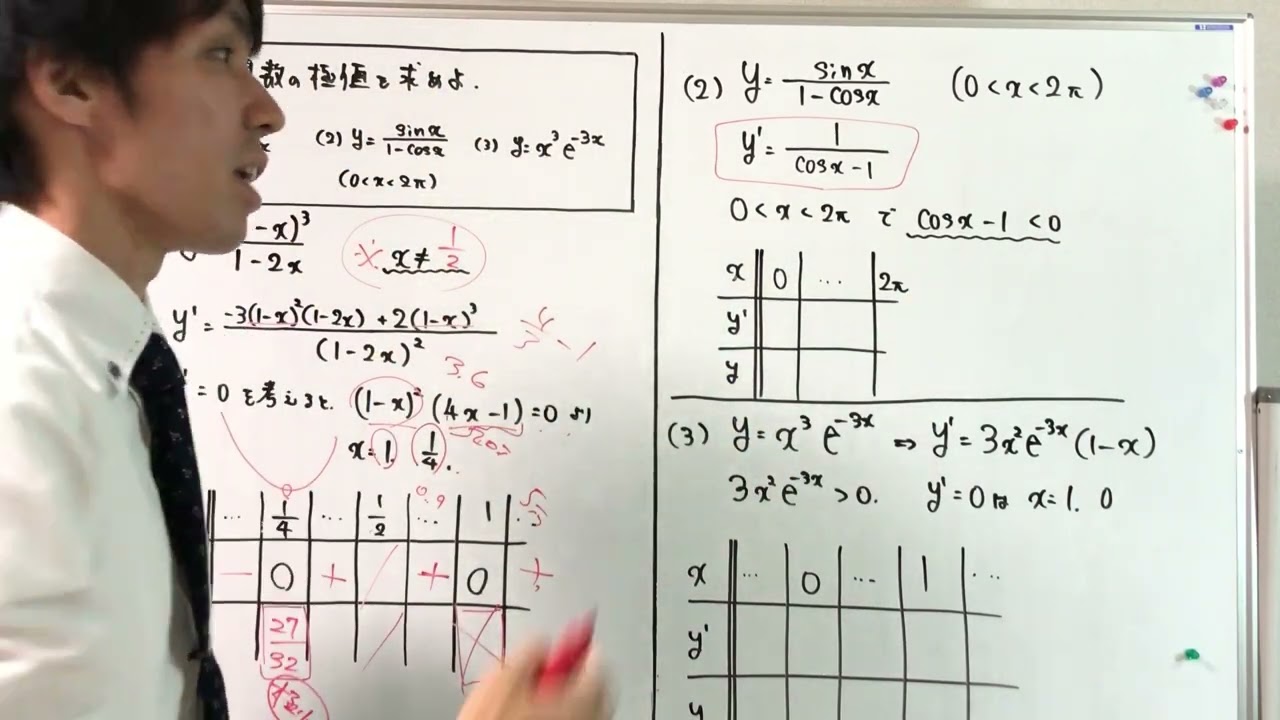 数の極値を求めよ.
(2) y = sinx / 1-cosx (3) y = x³e^{-3x}
(0<x<2π)
-x)³ / 1-2x ※ x ≠ 1/2
y' = -3(1-x)²(1-2x) + 2(1-x)³ / (1-2x)²
3.6
= 0 を考えると. (1-x)²(4x-1) = 0 より
x = 1, 1/4.
... 1/4 ... 1/2 ... 1 .
0.9
- 0 + / + 0 +
27/32
(2) y = sinx / 1-cosx (0<x<2π)
y' = 1 / cosx-1
0<x<2π で cosx-1 <0
x 0 ... 2π
y'
y
(3) y = x³e^{-3x} ⇒ y' = 3x²e^{-3x}(1-x)
3x²e^{-3x} > 0. y' = 0 は x = 1. 0
x ... 0 ... 1 ...
y'
y